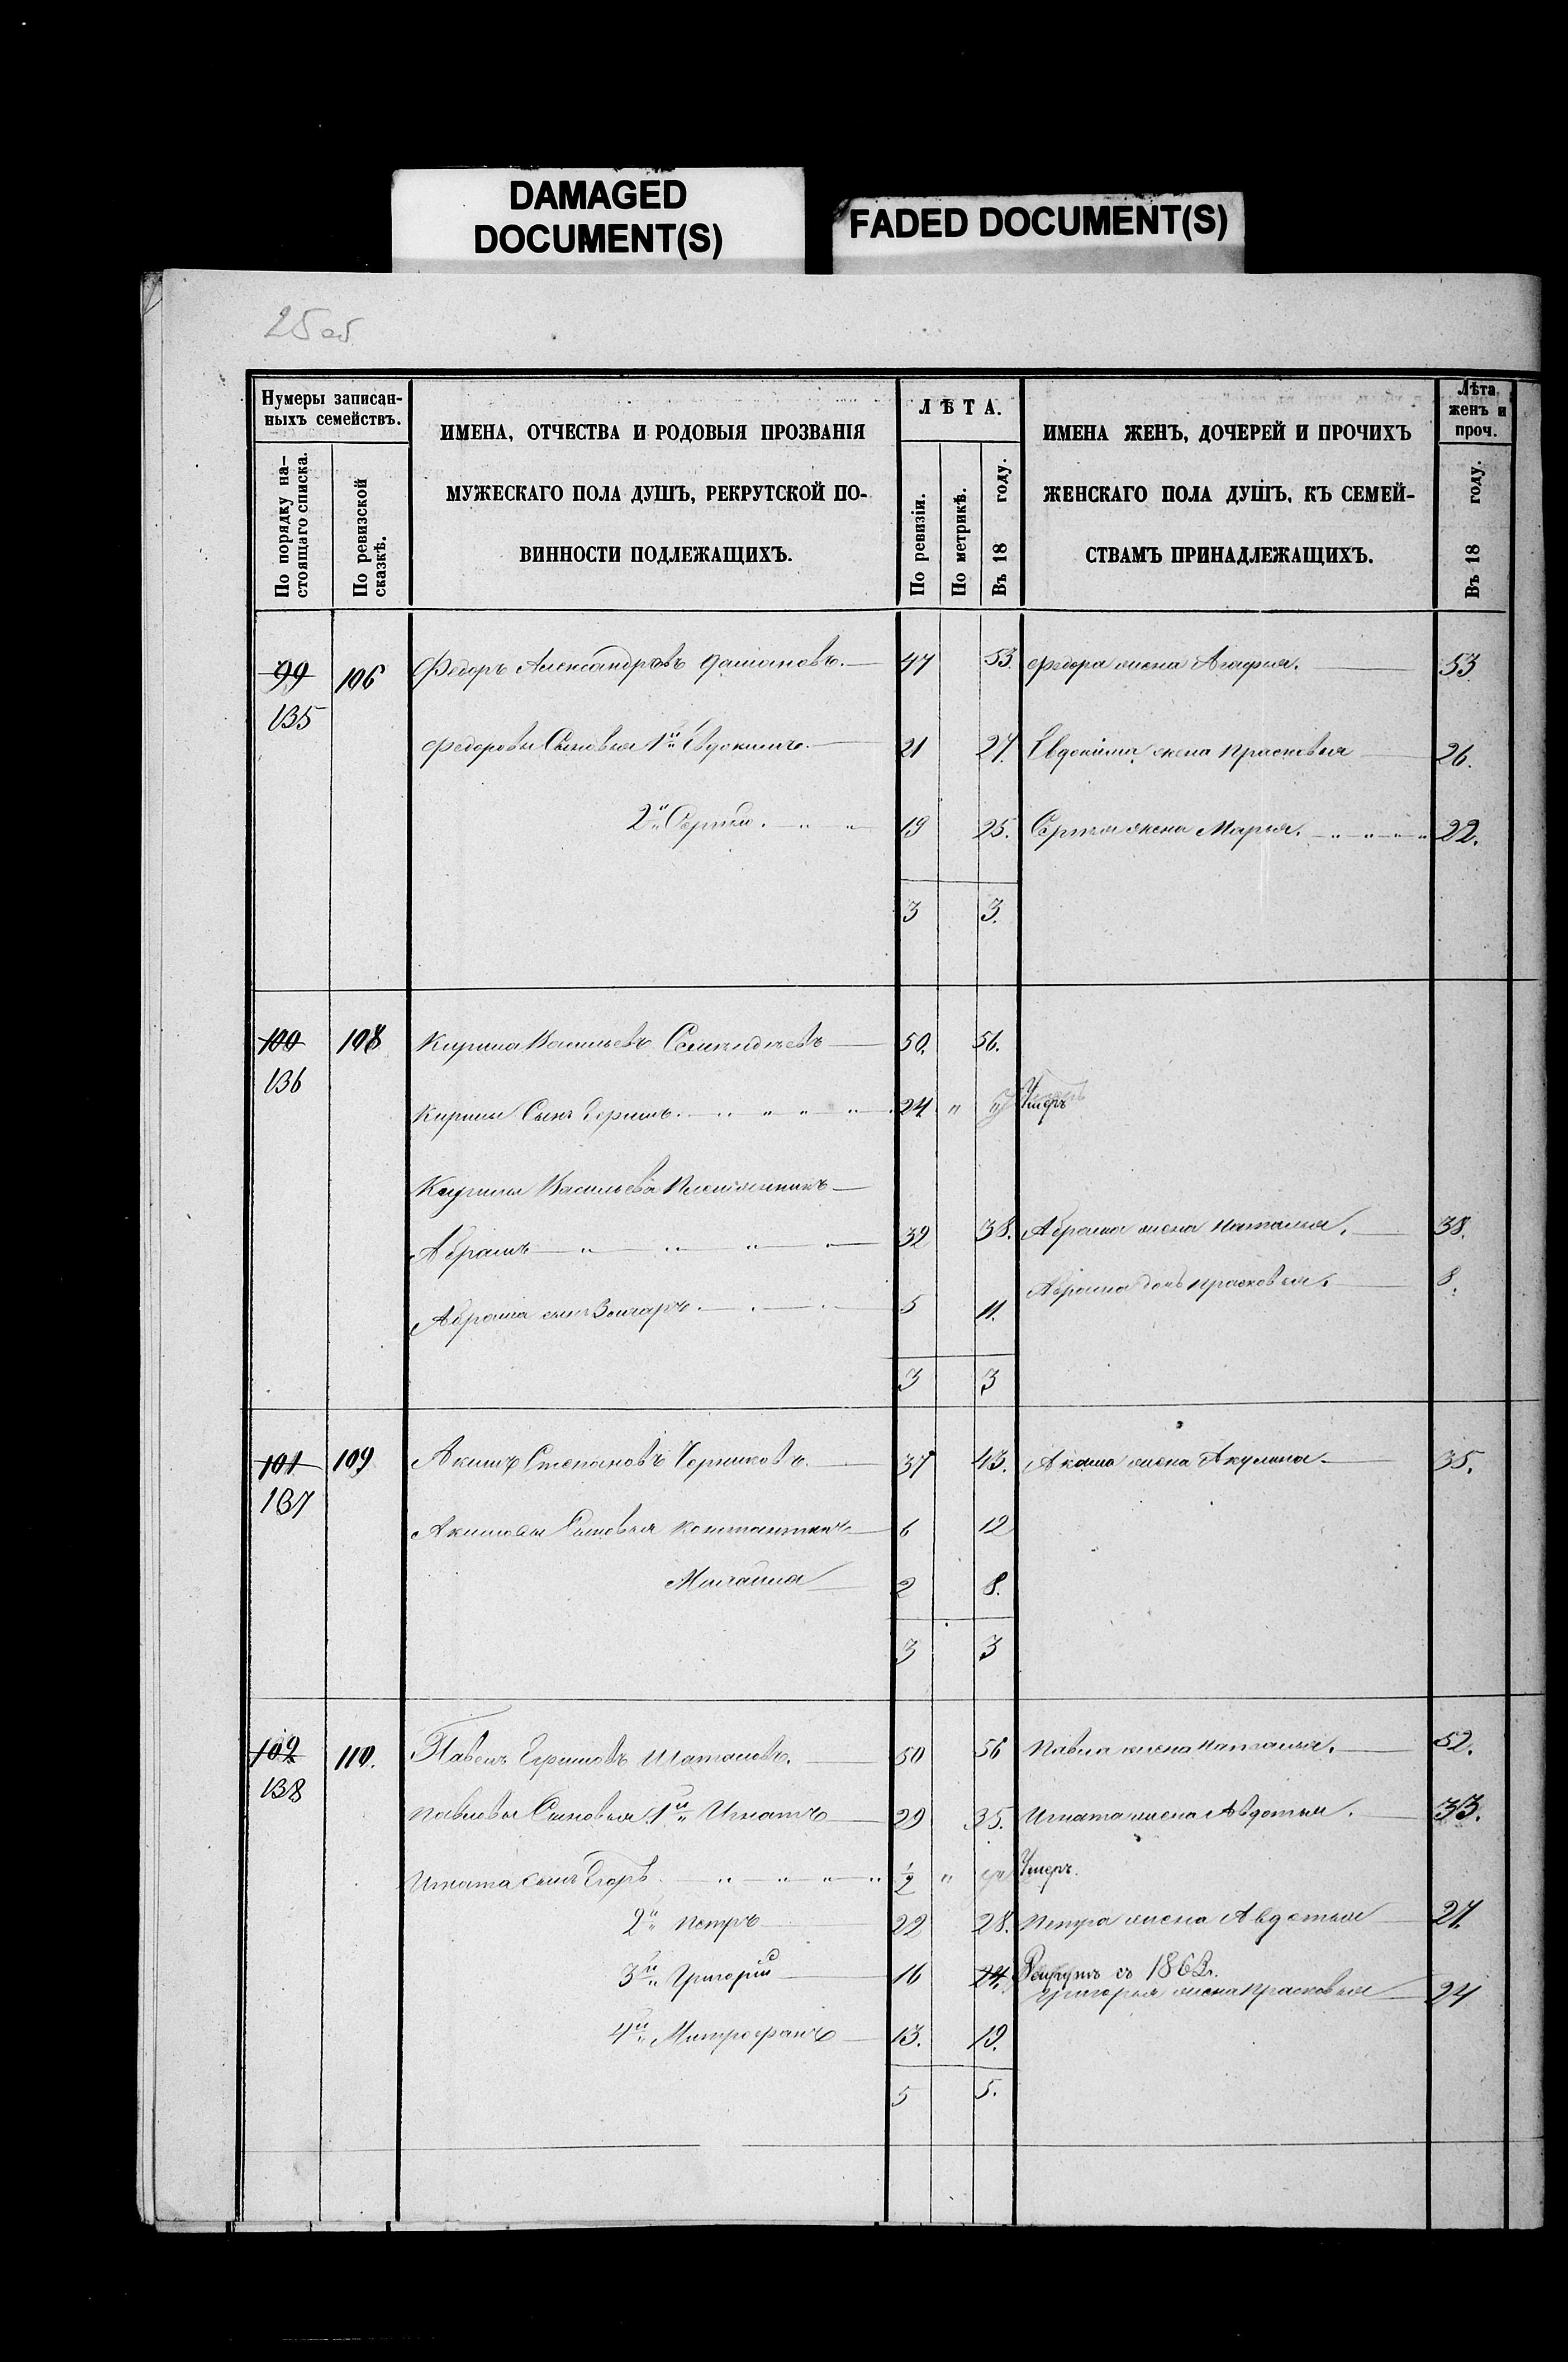 DAMAGED
DOCUMENT(S)
FADED DOCUMENT(S)
25 об
Нумеры записан-
ныхъ семействъ.
По порядку на-
стоящаго списка.
По ревизской
сказкѣ.
ИМЕНА, ОТЧЕСТВА И РОДОВЫЯ ПРОЗВАНІЯ
МУЖЕСКАГО ПОЛА ДУШЪ, РЕКРУТСКОЙ ПО-
ВИННОСТИ ПОДЛЕЖАЩИХЪ.
ЛѢТА.
По ревизіи.
По метрикѣ.
Въ 18 году.
ИМЕНА ЖЕНЪ, ДОЧЕРЕЙ И ПРОЧИХЪ
ЖЕНСКАГО ПОЛА ДУШЪ, КЪ СЕМЕЙ-
СТВАМЪ ПРИНАДЛЕЖАЩИХЪ.
Лѣта
женъ и
проч.
Въ 18 году.
99 106 Федоръ Александровъ 47 53. Федора жена Агафья. 53
135
Федоровы Сыновья 1й Евдокимъ. 21 27. Евдокима жена Прасковья 26.
2й Сергѣй. 19 25. Сергѣя жена Марья. 22.
3 3.
100 108 Кирила Васильевъ 50. 56.
136
Кирилы Сынъ 24 " Умеръ
Кирилы Васильева Племянникъ
Абрамъ 32 38. Абрама жена Наталья. 38.
Абрама дочь Прасковья. 8.
Абрама сынъ Захаръ. 5 11.
3 3
101 109 Акимъ Степановъ Черниковъ. 37 43. Акима жена Акулина. 35.
137
Акимовы Сыновья Константинъ 6 12
Михайла 2 8.
3 3
102 110. Павелъ Ефимовъ Шаталовъ. 50 56 Павла жена Наталья. 52.
138
Павловы Сыновья 1й Игнатъ 29 35. Игната жена Авдотья. 33.
Игната сынъ Егоръ. 1/2 " Умеръ.
2й Петръ 22 28. Петра жена Авдотья 27.
3й Григорій 16 24. Рекрутъ съ 1863г.
Григорья жена Прасковья 24
4й Митрофанъ 13. 19.
5 5.